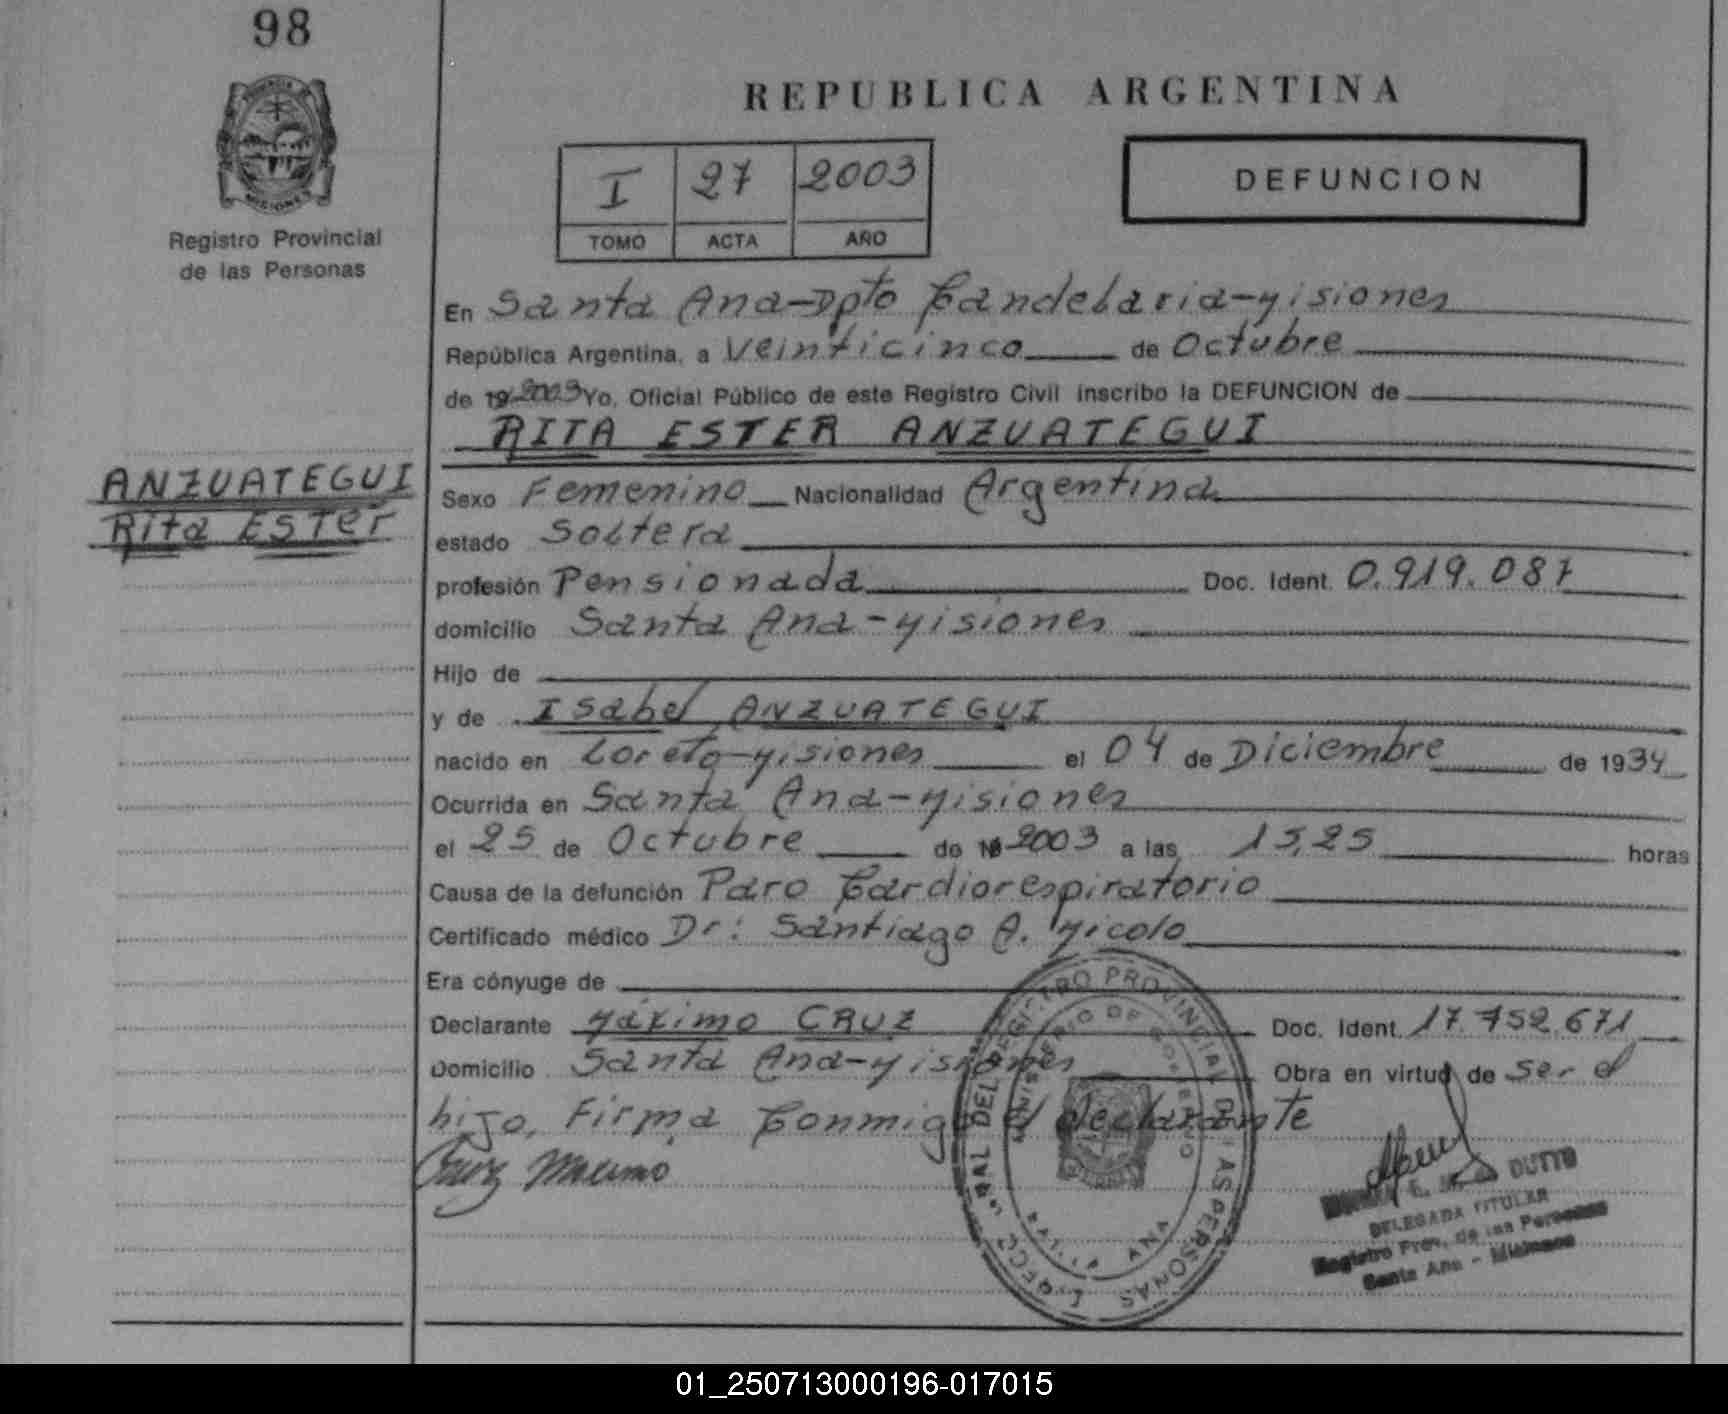 98
REPUBLICA ARGENTINA
I 27 2003
TOMO ACTA AÑO
DEFUNCION
Registro Provincial
de las Personas
En Santa Ana-Dpto Candelaria-Misiones
República Argentina, a Veinticinco de Octubre
de 19 2003 Yo, Oficial Público de este Registro Civil inscribo la DEFUNCION de
RITA ESTER ANZUATEGUI
ANZUATEGUI
Rita ESTER
Sexo Femenino Nacionalidad Argentina
estado Soltera
profesión Pensionada Doc. Ident. 0.919.087
domicilio Santa Ana-Misiones
Hijo de
y de Isabel ANZUATEGUI
nacido en Loreto-Misiones el 04 de Diciembre de 1934
Ocurrida en Santa Ana-Misiones
el 25 de Octubre de 2003 a las 15,25 horas
Causa de la defunción Paro Cardiorespiratorio
Certificado médico Dr: Santiago A. Micolo
Era cónyuge de
Declarante Máximo CRUZ Doc. Ident. 17.752.671
Domicilio Santa Ana-Misiones Obra en virtud de ser el
hijo, Firma Conmigo el declarante
Cruz Maximo
REGISTRO PROVINCIAL DE LAS PERSONAS
MINISTERIO DE GOBIERNO
ANA
E. DUTTO
DELEGADA TITULAR
Registro Prov. de las Personas
Santa Ana - Misiones
01_250713000196-017015